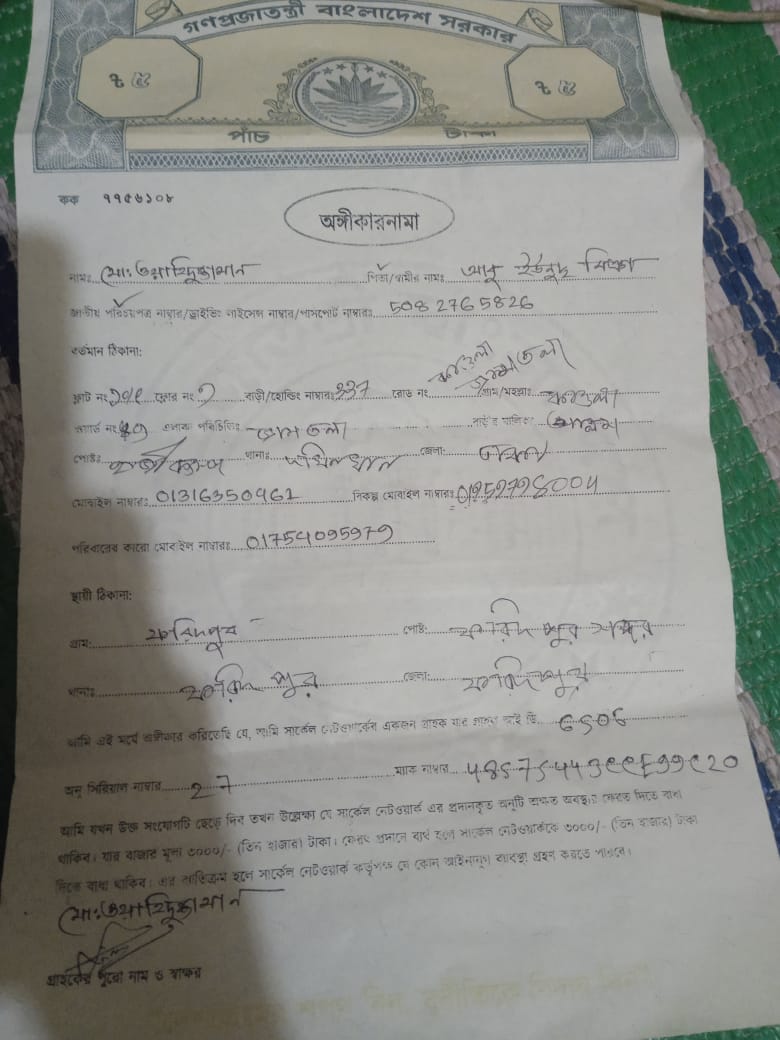 গণপ্রজাতন্ত্রী বাংলাদেশ সরকার
৳ ৫ ৳ ৫
পাঁচ টাকা
কক ৭৭৫৬১০৮
অঙ্গীকারনামা
নামঃ মোঃ ওয়াহিদুজ্জামান পিতা/স্বামীর নামঃ আবু ইউনুছ মিঞা
জাতীয় পরিচয়পত্র নাম্বার/ড্রাইভিং লাইসেন্স নাম্বার/পাসপোর্ট নাম্বারঃ 5082765826
বর্তমান ঠিকানা:
কাওলা
ফ্লাট নং ফ্লোর নং বাড়ী/হোল্ডিং নাম্বারঃ 237 রোড নং গ্রাম/মহল্লাঃ কাওলা
ওয়ার্ড নং এলাকা পরিচিতিঃ আমতলা বাড়ীর মালিকঃ
পোষ্টঃ থানাঃ দক্ষিনখান জেলা: ঢাকা
মোবাইল নাম্বারঃ 01316350961 বিকল্প মোবাইল নাম্বারঃ
পরিবারের কারো মোবাইল নাম্বারঃ 01754095979
স্থায়ী ঠিকানা:
গ্রামঃ ফরিদপুর পোষ্ট: ফরিদপুর সদর
থানাঃ ফরিদপুর জেলা: ফরিদপুর
আমি এই মর্মে অঙ্গীকার করিতেছি যে, আমি সার্কেল নেটওয়ার্কের একজন গ্রাহক যার গ্রাহক আই ডি
অনু সিরিয়াল নাম্বার 27 ম্যাক নাম্বার
আমি যখন উক্ত সংযোগটি ছেড়ে দিব তখন উল্লেখ্য যে সার্কেল নেটওয়ার্ক এর প্রদানকৃত অনুটি অক্ষত অবস্থায় ফেরত দিতে বাধ্য
থাকিব। যার বাজার মূল্য ৩০০০/- (তিন হাজার) টাকা। ফেরৎ প্রদানে ব্যর্থ হলে সার্কেল নেটওয়ার্ককে ৩০০০/- (তিন হাজার) টাকা
দিতে বাধ্য থাকিব। এর ব্যতিক্রম হলে সার্কেল নেটওয়ার্ক কর্তৃপক্ষ যে কোন আইনানুগ ব্যবস্থা গ্রহন করতে পারবে।
মোঃ ওয়াহিদুজ্জামান
গ্রাহকের পুরো নাম ও স্বাক্ষর